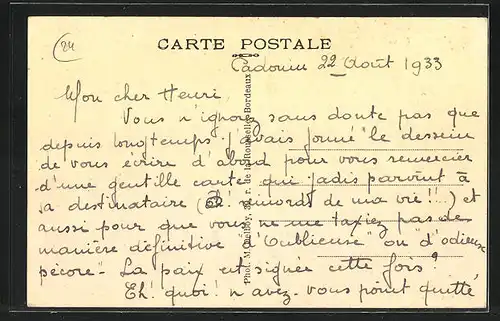 24
CARTE POSTALE
Cadouin 22 Août 1933
Mon cher Henri,
Vous n'ignorez sans doute pas que
depuis longtemps j'avais formé le dessein
de vous écrire d'abord pour vous remercier
d'une gentille carte qui jadis parvint à
sa destinataire (Oh! remords de ma vie!!...) et
aussi pour que vous ne me taxiez pas de
manière définitive d'"Oublieuse" ou "d'odieuse
pécore"- La paix est signée cette fois?
Eh! quoi! n'avez-vous point quitté
Phot. M. 32, r. de la Rousselle, Bordeaux